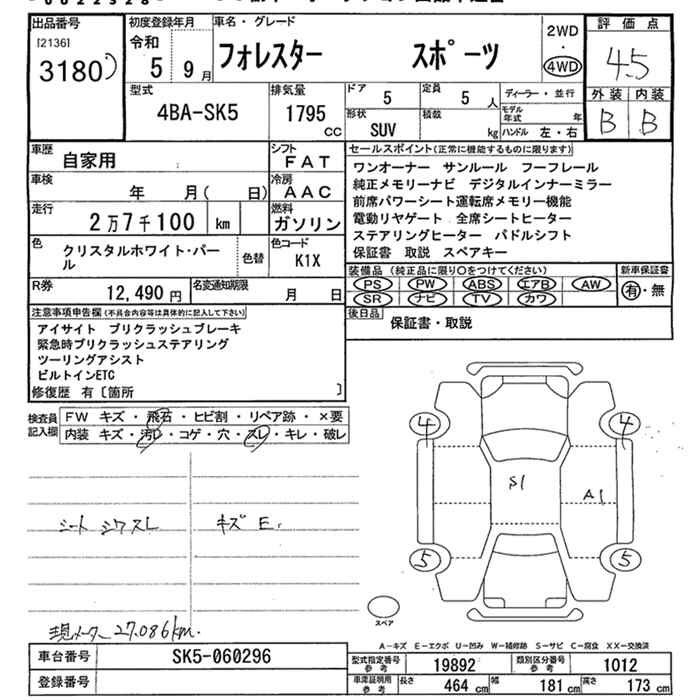 出品番号
[2136]
3180
初度登録年月
令和
5 9月
車名・グレード
フォレスター スポーツ
2WD
・
4WD
評価点
4.5
外装 内装
B B
型式
4BA-SK5
排気量
1795
CC
ドア
5
定員
5 人
形状
SUV
積載
kg
ディーラー・並行
モデル年式 年
ハンドル 左・右
車歴
自家用
シフト
FAT
車検
年 月( 日)
冷房
AAC
走行
2万7千100 km
燃料
ガソリン
色
クリスタルホワイト・パール
色替
色コード
K1X
R券
12,490 円
名変通知期限
月 日
セールスポイント(正常に機能するものに限ります)
ワンオーナー サンルール フーフレール
純正メモリーナビ デジタルインナーミラー
前席パワーシート運転席メモリー機能
電動リヤゲート 全席シートヒーター
ステアリングヒーター パドルシフト
保証書 取説 スペアキー
装備品 (純正品に限り○をつけてください)
PS PW ABS エアB AW
SR ナビ TV カワ
新車保証書
有・無
後日品
保証書・取説
注意事項申告欄(不具合内容等は具体的に記入して下さい)
アイサイト プリクラッシュブレーキ
緊急時プリクラッシュステアリング
ツーリングアシスト
ビルトインETC
修復歴 有〔箇所 〕
検査員
記入欄
FW キズ・飛石・ヒビ割・リペア跡・×要
内装 キズ・汚レ・コゲ・穴・スレ・キレ・破レ
シート シワスレ
キズ E.
現メーター 27.086km.
4 4
S1
A1
5 5
スペア
A－キズ E－エクボ U－凹み W－補修跡 S－サビ C－腐食 XX－交換済
車台番号
SK5-060296
登録番号
型式指定番号
参考
19892
類別区分番号
参考
1012
車庫証明用
参考
長さ 464 cm
幅 181 cm
高さ 173 cm